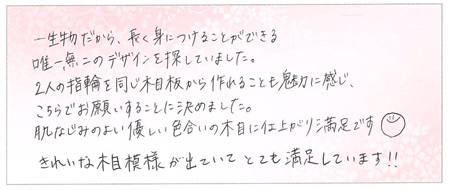 一生物だから、長く身につけることができる
唯一無二のデザインを探していました。
2人の指輪を同じ木目板から作れることも魅力に感じ、
こちらでお願いすることに決めました。
肌なじみのよい優しい色合いの木目に仕上がり満足です
きれいな木目模様が出ていてとても満足しています!!